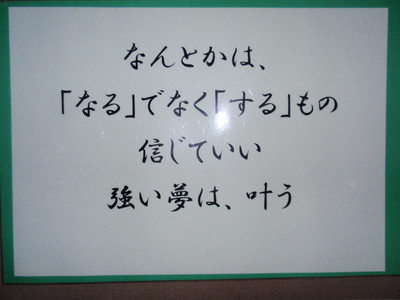 なんとかは、
「なる」でなく「する」もの
信じていい
強い夢は、叶う